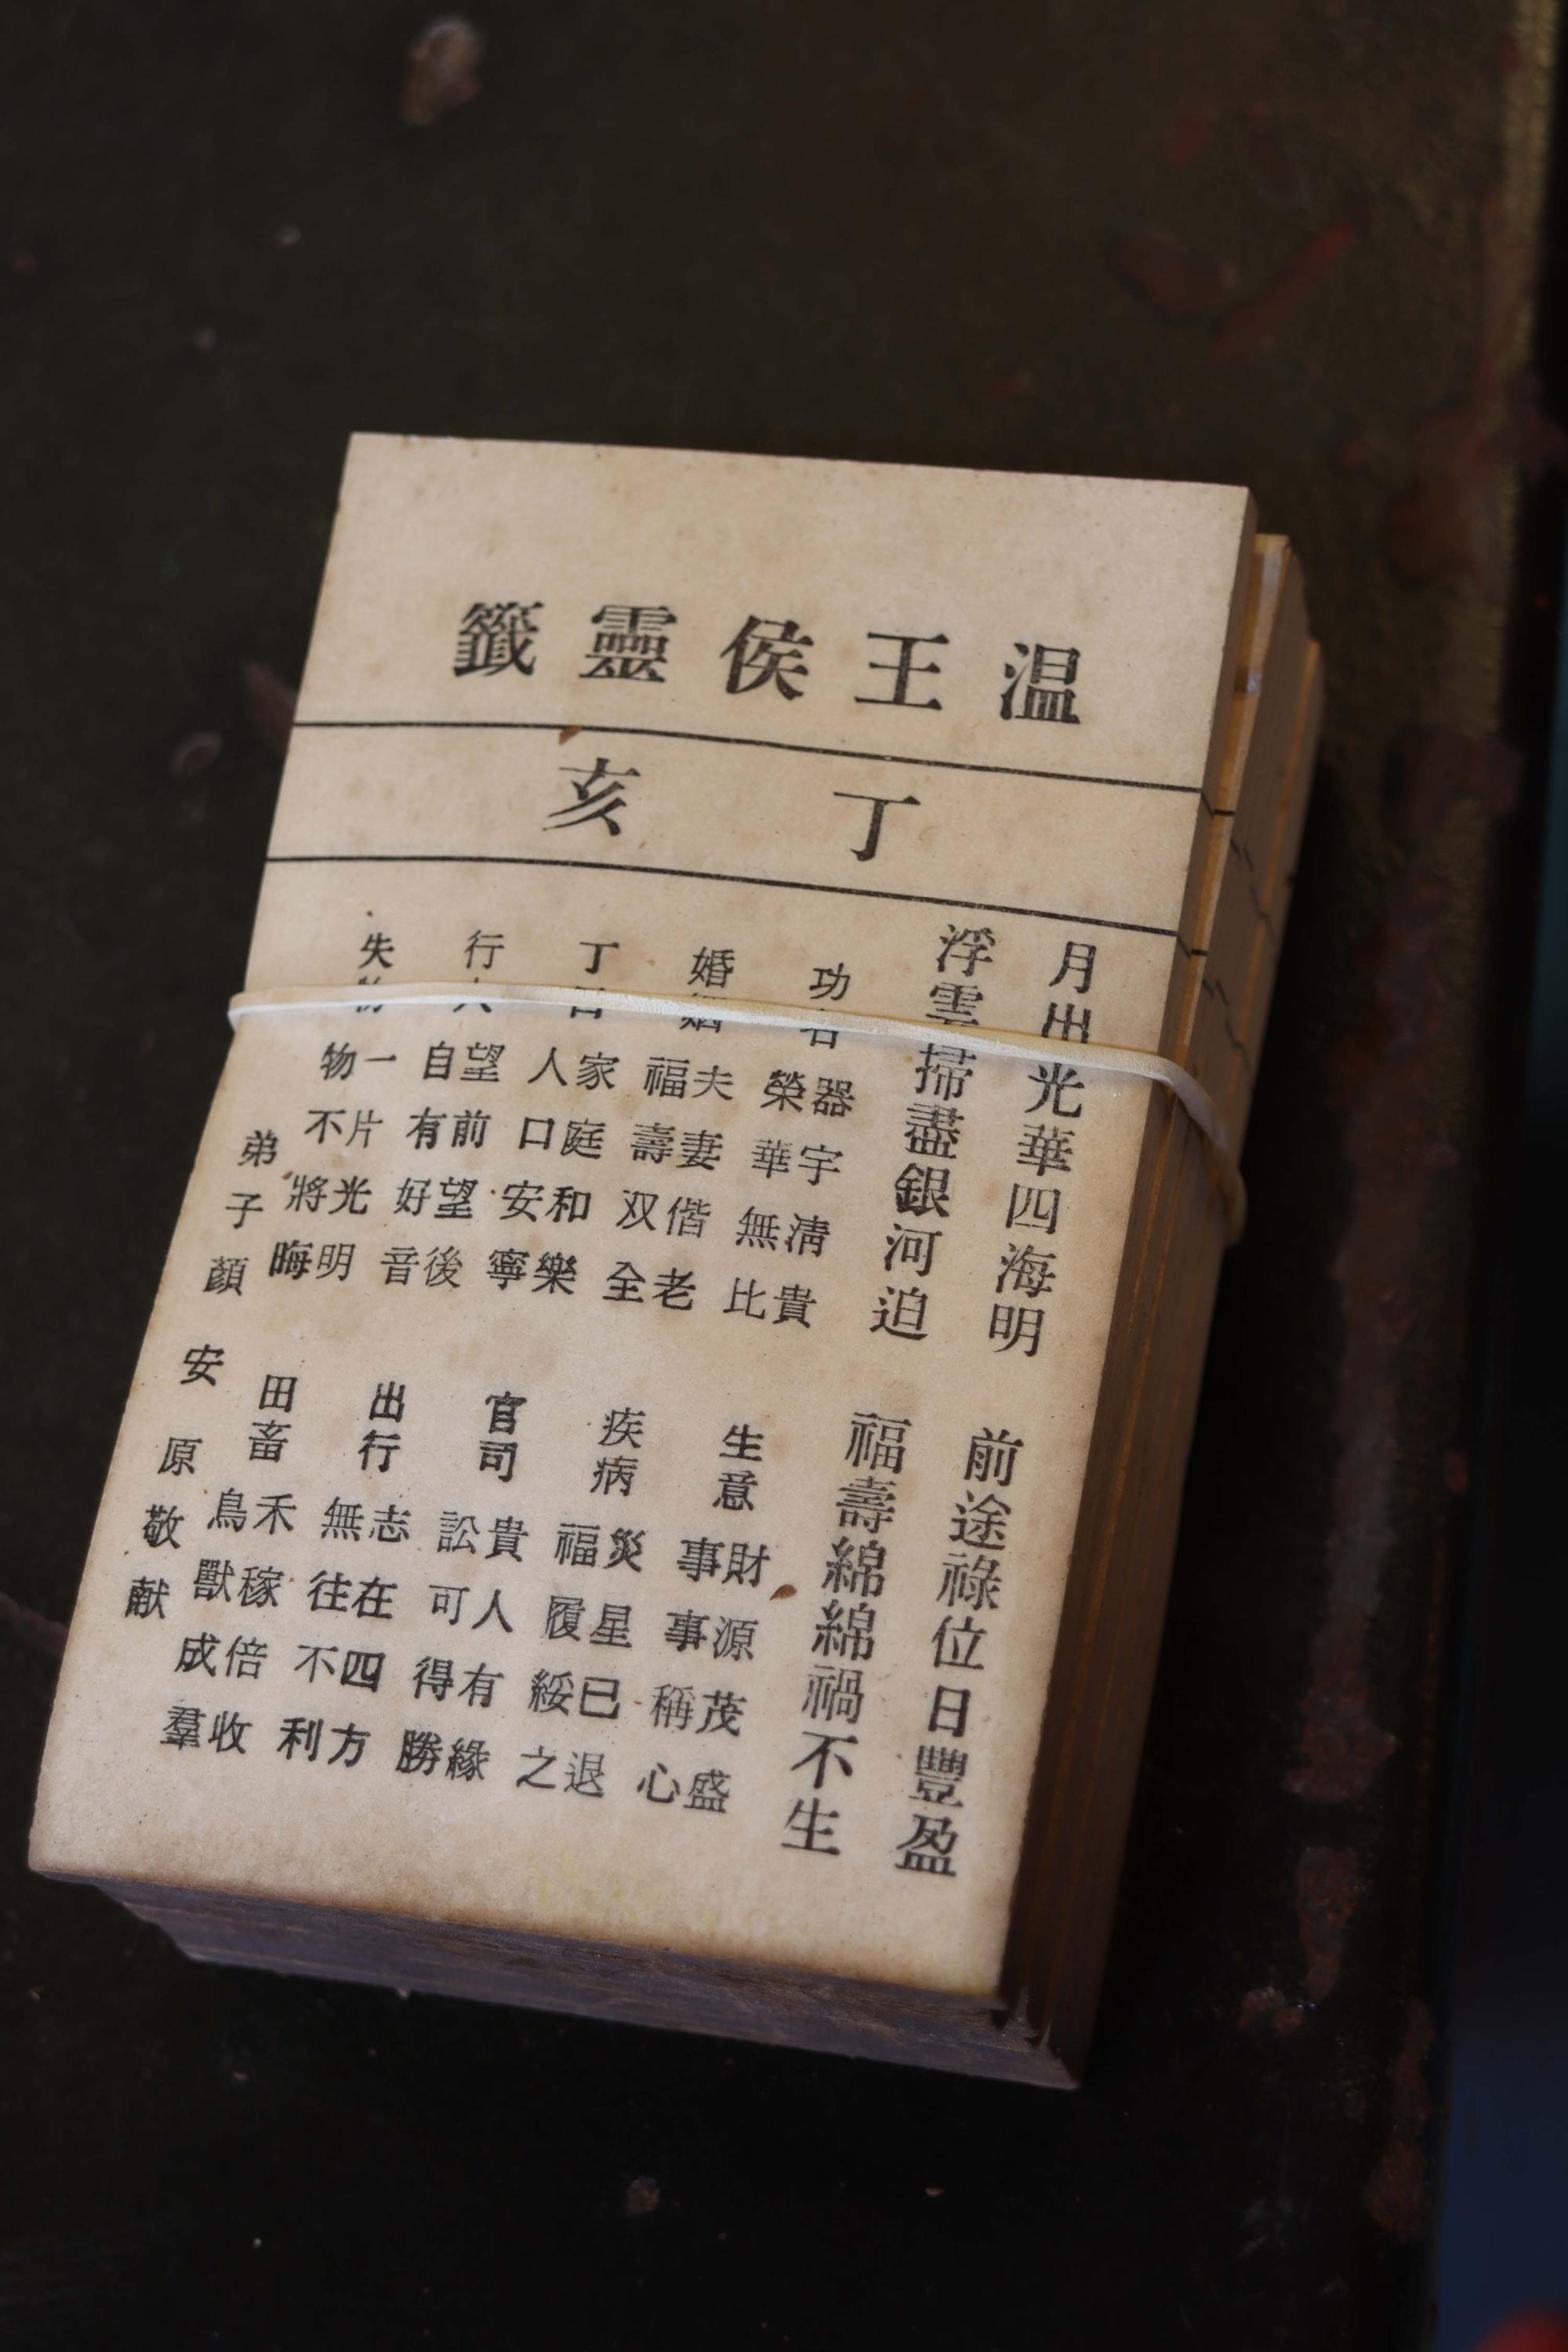 温王侯靈籤
丁亥
月出光華四海明
前途祿位日豐盈
浮雲掃盡銀河迫
福壽綿綿禍不生
功名
器宇清貴
榮華無比
生意
財源茂盛
事事稱心
婚姻
夫妻偕老
福壽双全
疾病
災星已退
福履綏之
丁口
家庭和樂
人口安寧
官司
貴人有緣
訟可得勝
行人
望前望後
自有好音
出行
志在四方
無往不利
失物
一片光明
物不將晦
田畜
禾稼倍收
鳥獸成羣
弟子顏安原敬献